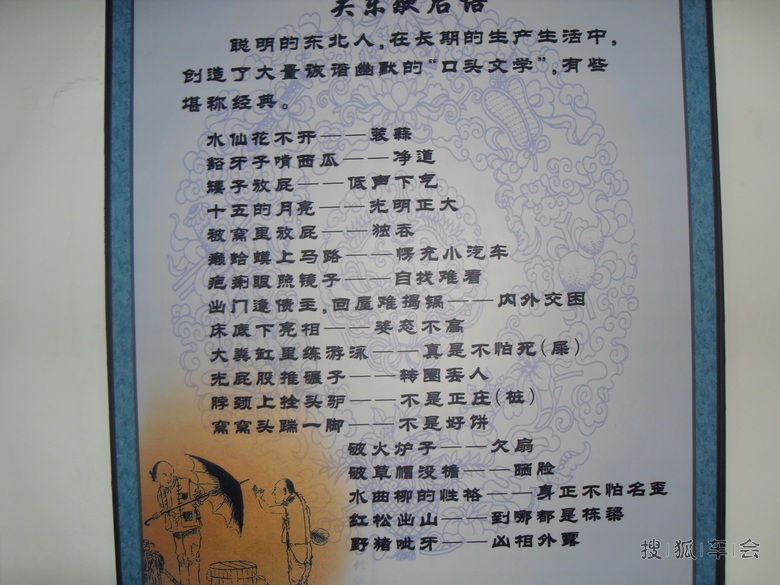 关东歇后语
聪明的东北人,在长期的生产生活中,
创造了大量诙谐幽默的“口头文学”,有些
堪称经典。
水仙花不开——装蒜
豁牙子啃西瓜——净道
矮子放屁——低声下气
十五的月亮——光明正大
被窝里放屁——独吞
癞蛤蟆上马路——愣充小汽车
疤瘌眼照镜子——自找难看
出门逢债主,回屋难揭锅——内外交困
床底下亮相——姿态不高
大粪缸里练游泳——真是不怕死(屎)
光屁股推碾子——转圈丢人
脖颈上拴头驴——不是正庄(桩)
窝窝头踹一脚——不是好饼
破火炉子——欠扇
破草帽没檐——晒脸
水曲柳的性格——身正不怕名歪
红松出山——到哪都是栋梁
野猪呲牙——凶相外露
搜狐车会